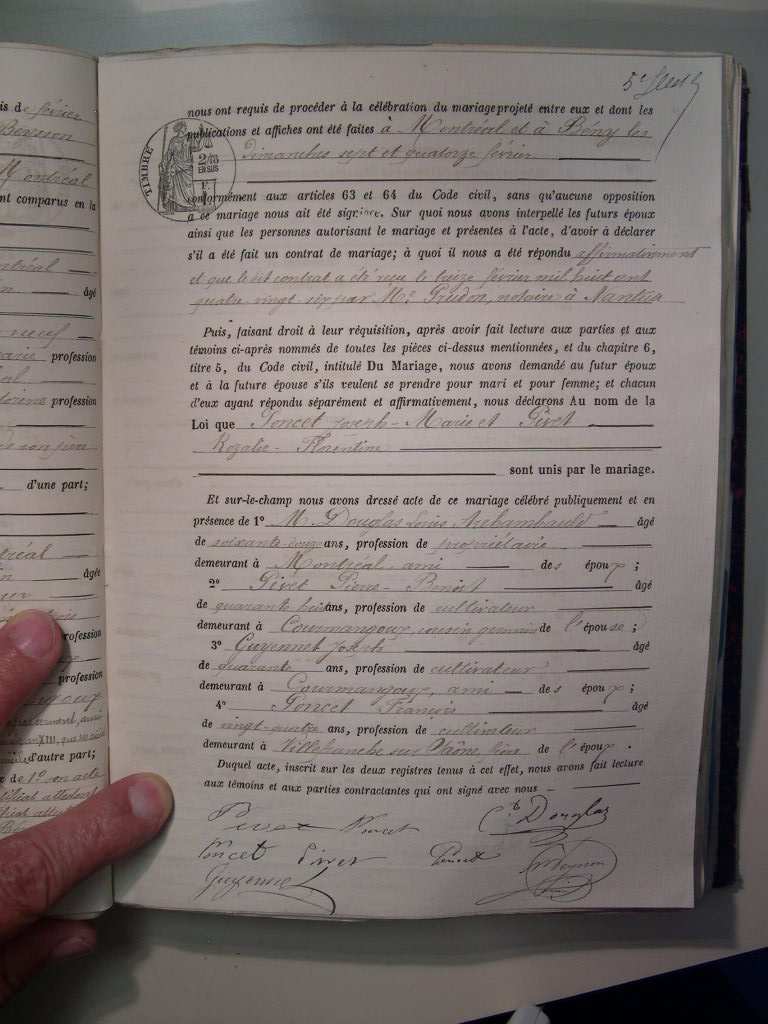 5e
is de février
Montréal
nt comparus en la
âgé
neuf
profession
profession
d'une part;
âgée
profession
profession
d'autre part;
de 1° son acte
nous ont requis de procéder à la célébration du mariage projeté entre eux et dont les
publications et affiches ont été faites à Montréal et à Bény les
dimanches sept et quatorze février
TIMBRE
2/10
EN SUS
conformément aux articles 63 et 64 du Code civil, sans qu'aucune opposition
à ce mariage nous ait été signifiée. Sur quoi nous avons interpellé les futurs époux
ainsi que les personnes autorisant le mariage et présentes à l'acte, d'avoir à déclarer
s'il a été fait un contrat de mariage; à quoi il nous a été répondu affirmativement
et que le dit contrat a été reçu le treize février mil huit cent
quatre vingt-six par Me Gridon, notaire à Nantua
Puis, faisant droit à leur réquisition, après avoir fait lecture aux parties et aux
témoins ci-après nommés de toutes les pièces ci-dessus mentionnées, et du chapitre 6,
titre 5, du Code civil, intitulé Du Mariage, nous avons demandé au futur époux
et à la future épouse s'ils veulent se prendre pour mari et pour femme; et chacun
d'eux ayant répondu séparément et affirmativement, nous déclarons Au nom de la
Loi que Poncet Joseph-Marie et Pivet
Rozalie-Florentine
sont unis par le mariage.
Et sur-le-champ nous avons dressé acte de ce mariage célébré publiquement et en
présence de 1° M. Douglas Louis Archambauld âgé
de soixante-douze ans, profession de propriétaire
demeurant à Montréal, ami des époux;
2° Pivet Pierre-Benoit âgé
de quarante huit ans, profession de cultivateur
demeurant à Courmangoux, cousin germain de l'épouse;
3° Guyennet Joseph âgé
de quarante ans, profession de cultivateur
demeurant à Courmangoux, ami des époux;
4° Poncet Francis âgé
de vingt-quatre ans, profession de cultivateur
demeurant à Villefranche sur Saône, frère de l'époux.
Duquel acte, inscrit sur les deux registres tenus à cet effet, nous avons fait lecture
aux témoins et aux parties contractantes qui ont signé avec nous
Pivet Poncet Douglas
Poncet Pivet Poncet
Guyennet